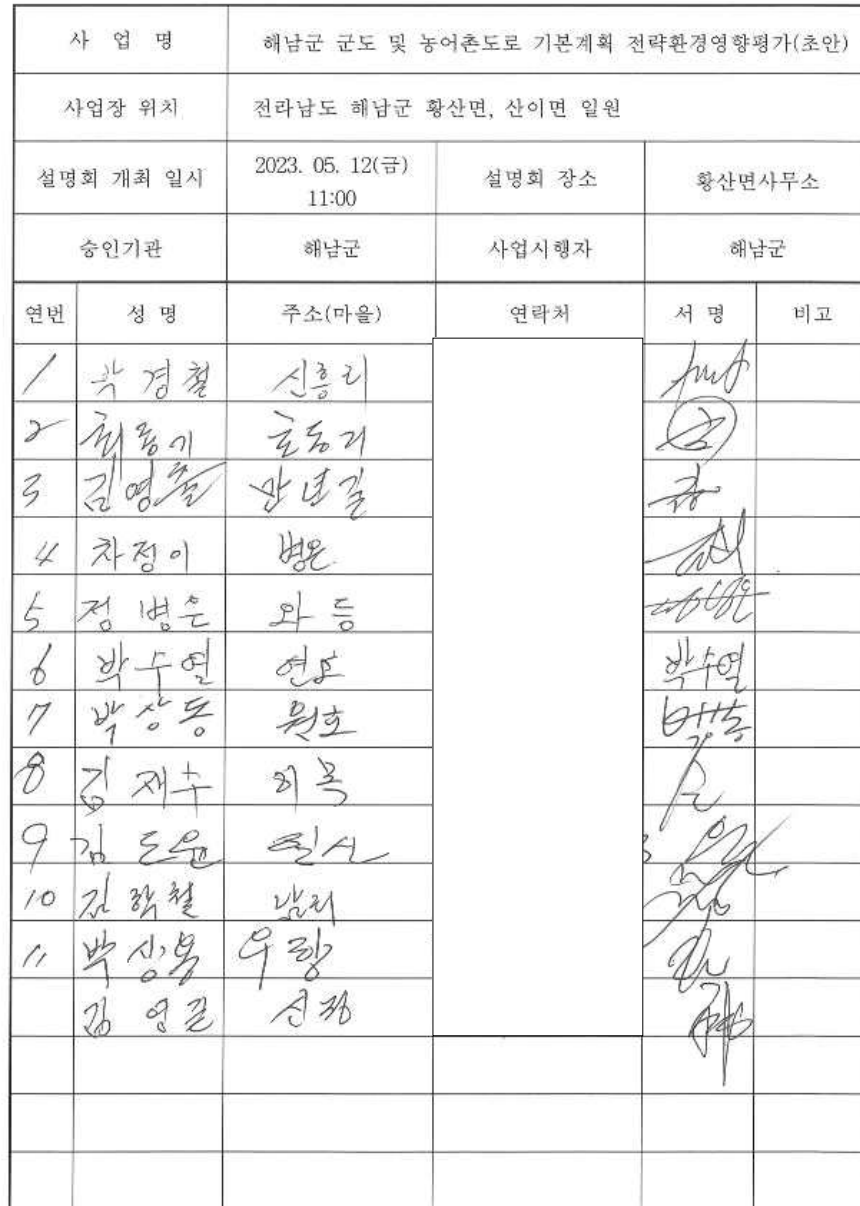 사 업 명 해남군 군도 및 농어촌도로 기본계획 전략환경영향평가(초안)
사업장 위치 전라남도 해남군 황산면, 산이면 일원
설명회 개최 일시 2023. 05. 12(금) 11:00 설명회 장소 황산면사무소
승인기관 해남군 사업시행자 해남군
연번 성 명 주소(마을) 연락처 서 명 비고
1 곽경철 신흥리
2 최종기 호동리
3 김영출 만년길
4 차정이 병온
5 정병은 와등
6 박수열 연호 박수열
7 박상동 원호
8 김재수 이목
9 김도윤
10 김학철 남리
11 박상용 우항
김영길 신정